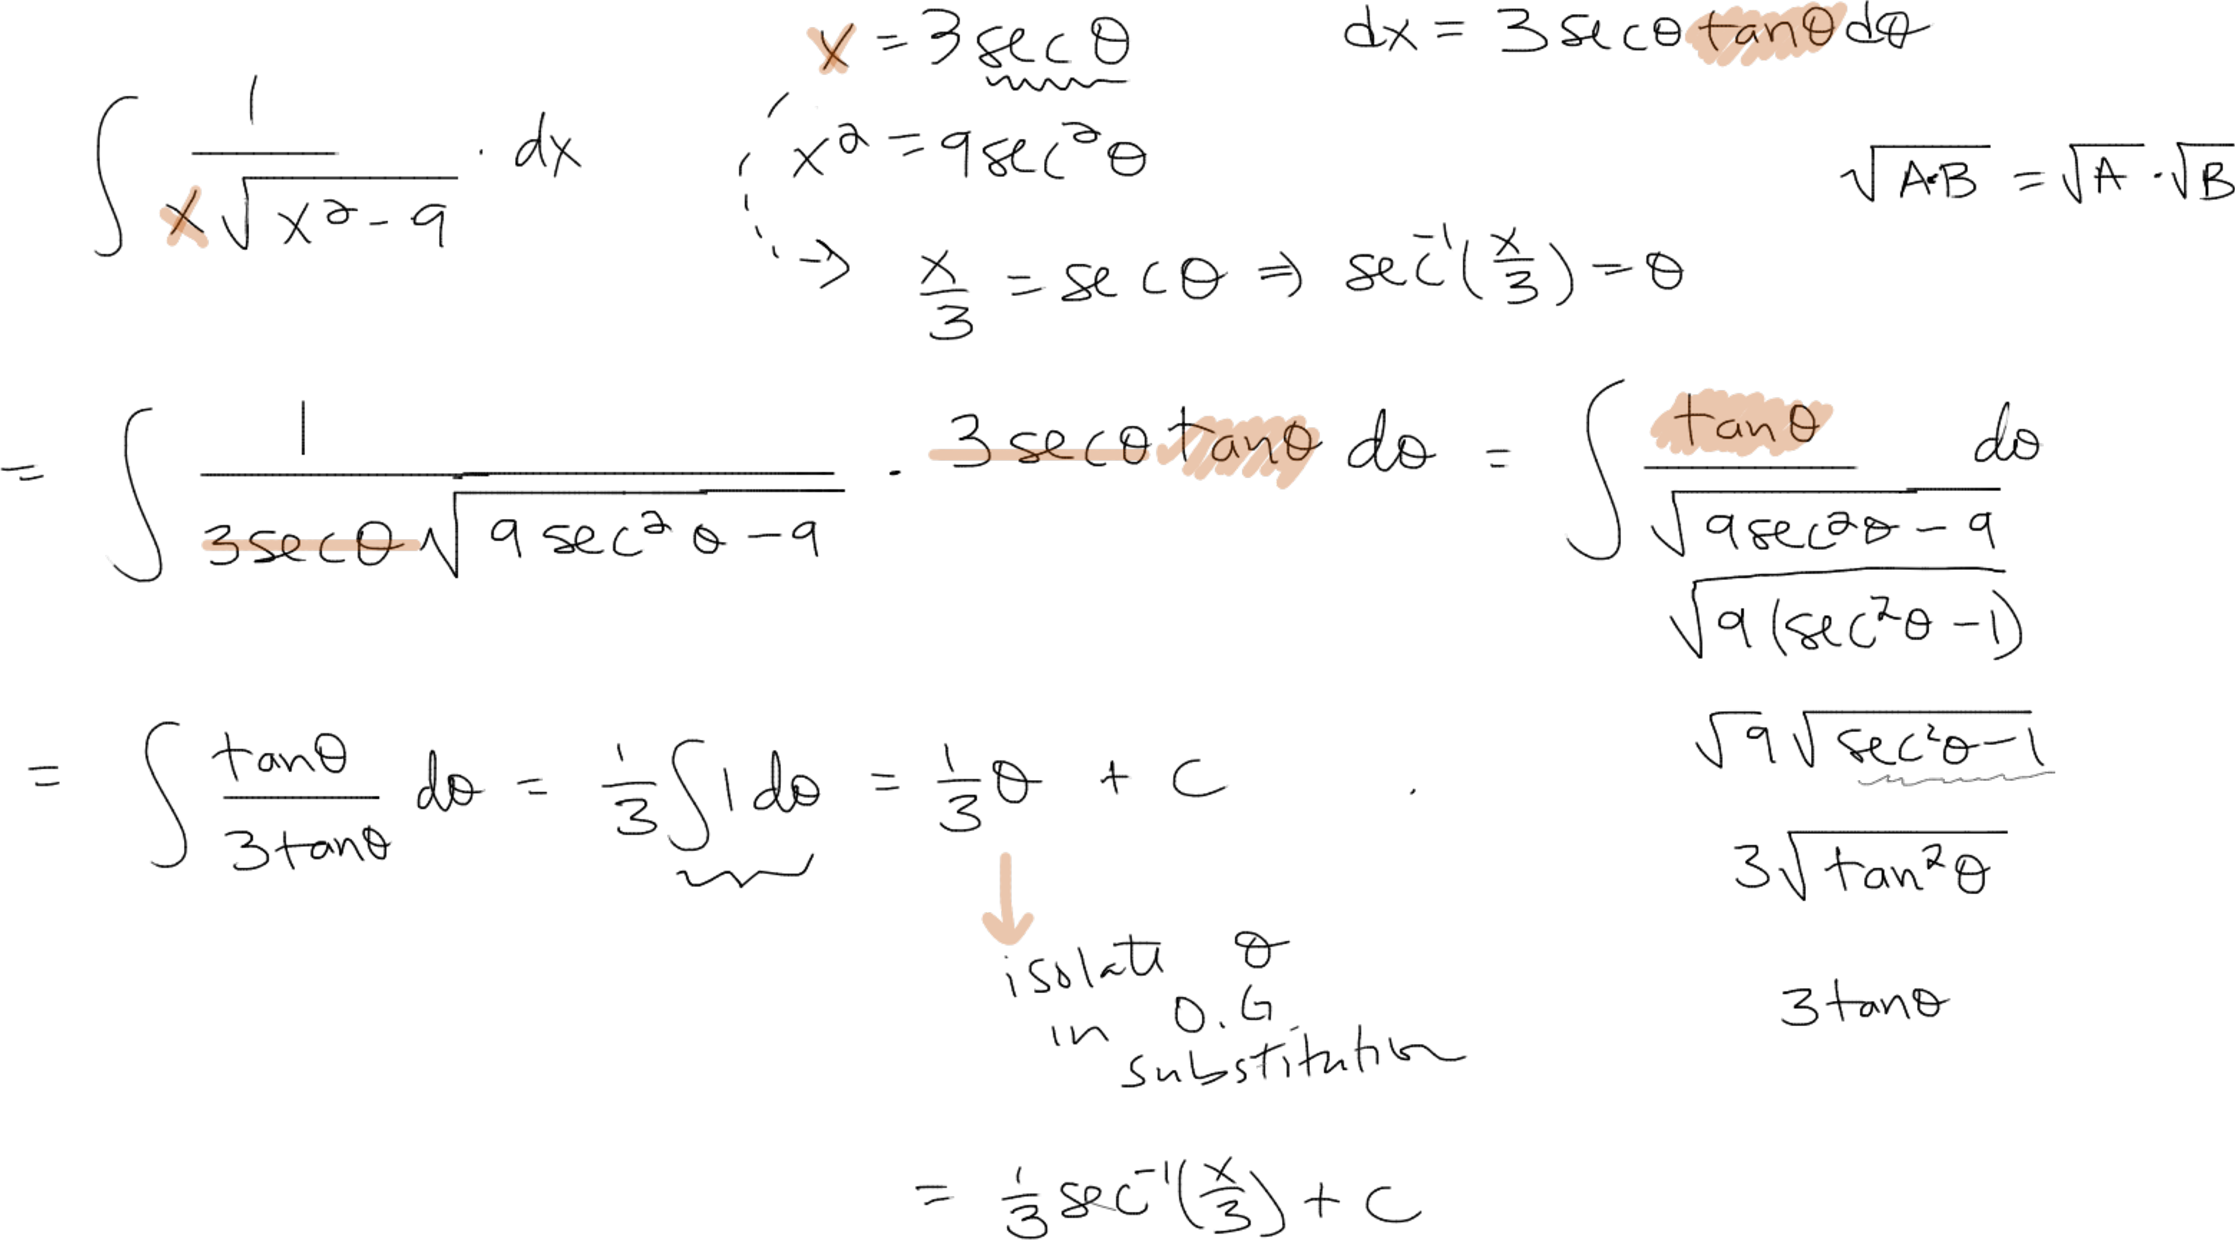 x = 3 sec θ
dx = 3 sec θ tan θ dθ
∫ 1 / (x √(x² - 9)) · dx
x² = 9 sec² θ
√(A·B) = √A · √B
x/3 = sec θ ⇒ sec⁻¹(x/3) = θ
= ∫ 1 / (3 sec θ √(9 sec² θ - 9)) · 3 sec θ tan θ dθ = ∫ tan θ / √(9 sec² θ - 9) dθ
√(9 (sec² θ - 1))
√9 √(sec² θ - 1)
= ∫ tan θ / (3 tan θ) dθ = 1/3 ∫ 1 dθ = 1/3 θ + C
3 √(tan² θ)
isolate θ
in O.G
substitution
3 tan θ
= 1/3 sec⁻¹(x/3) + C